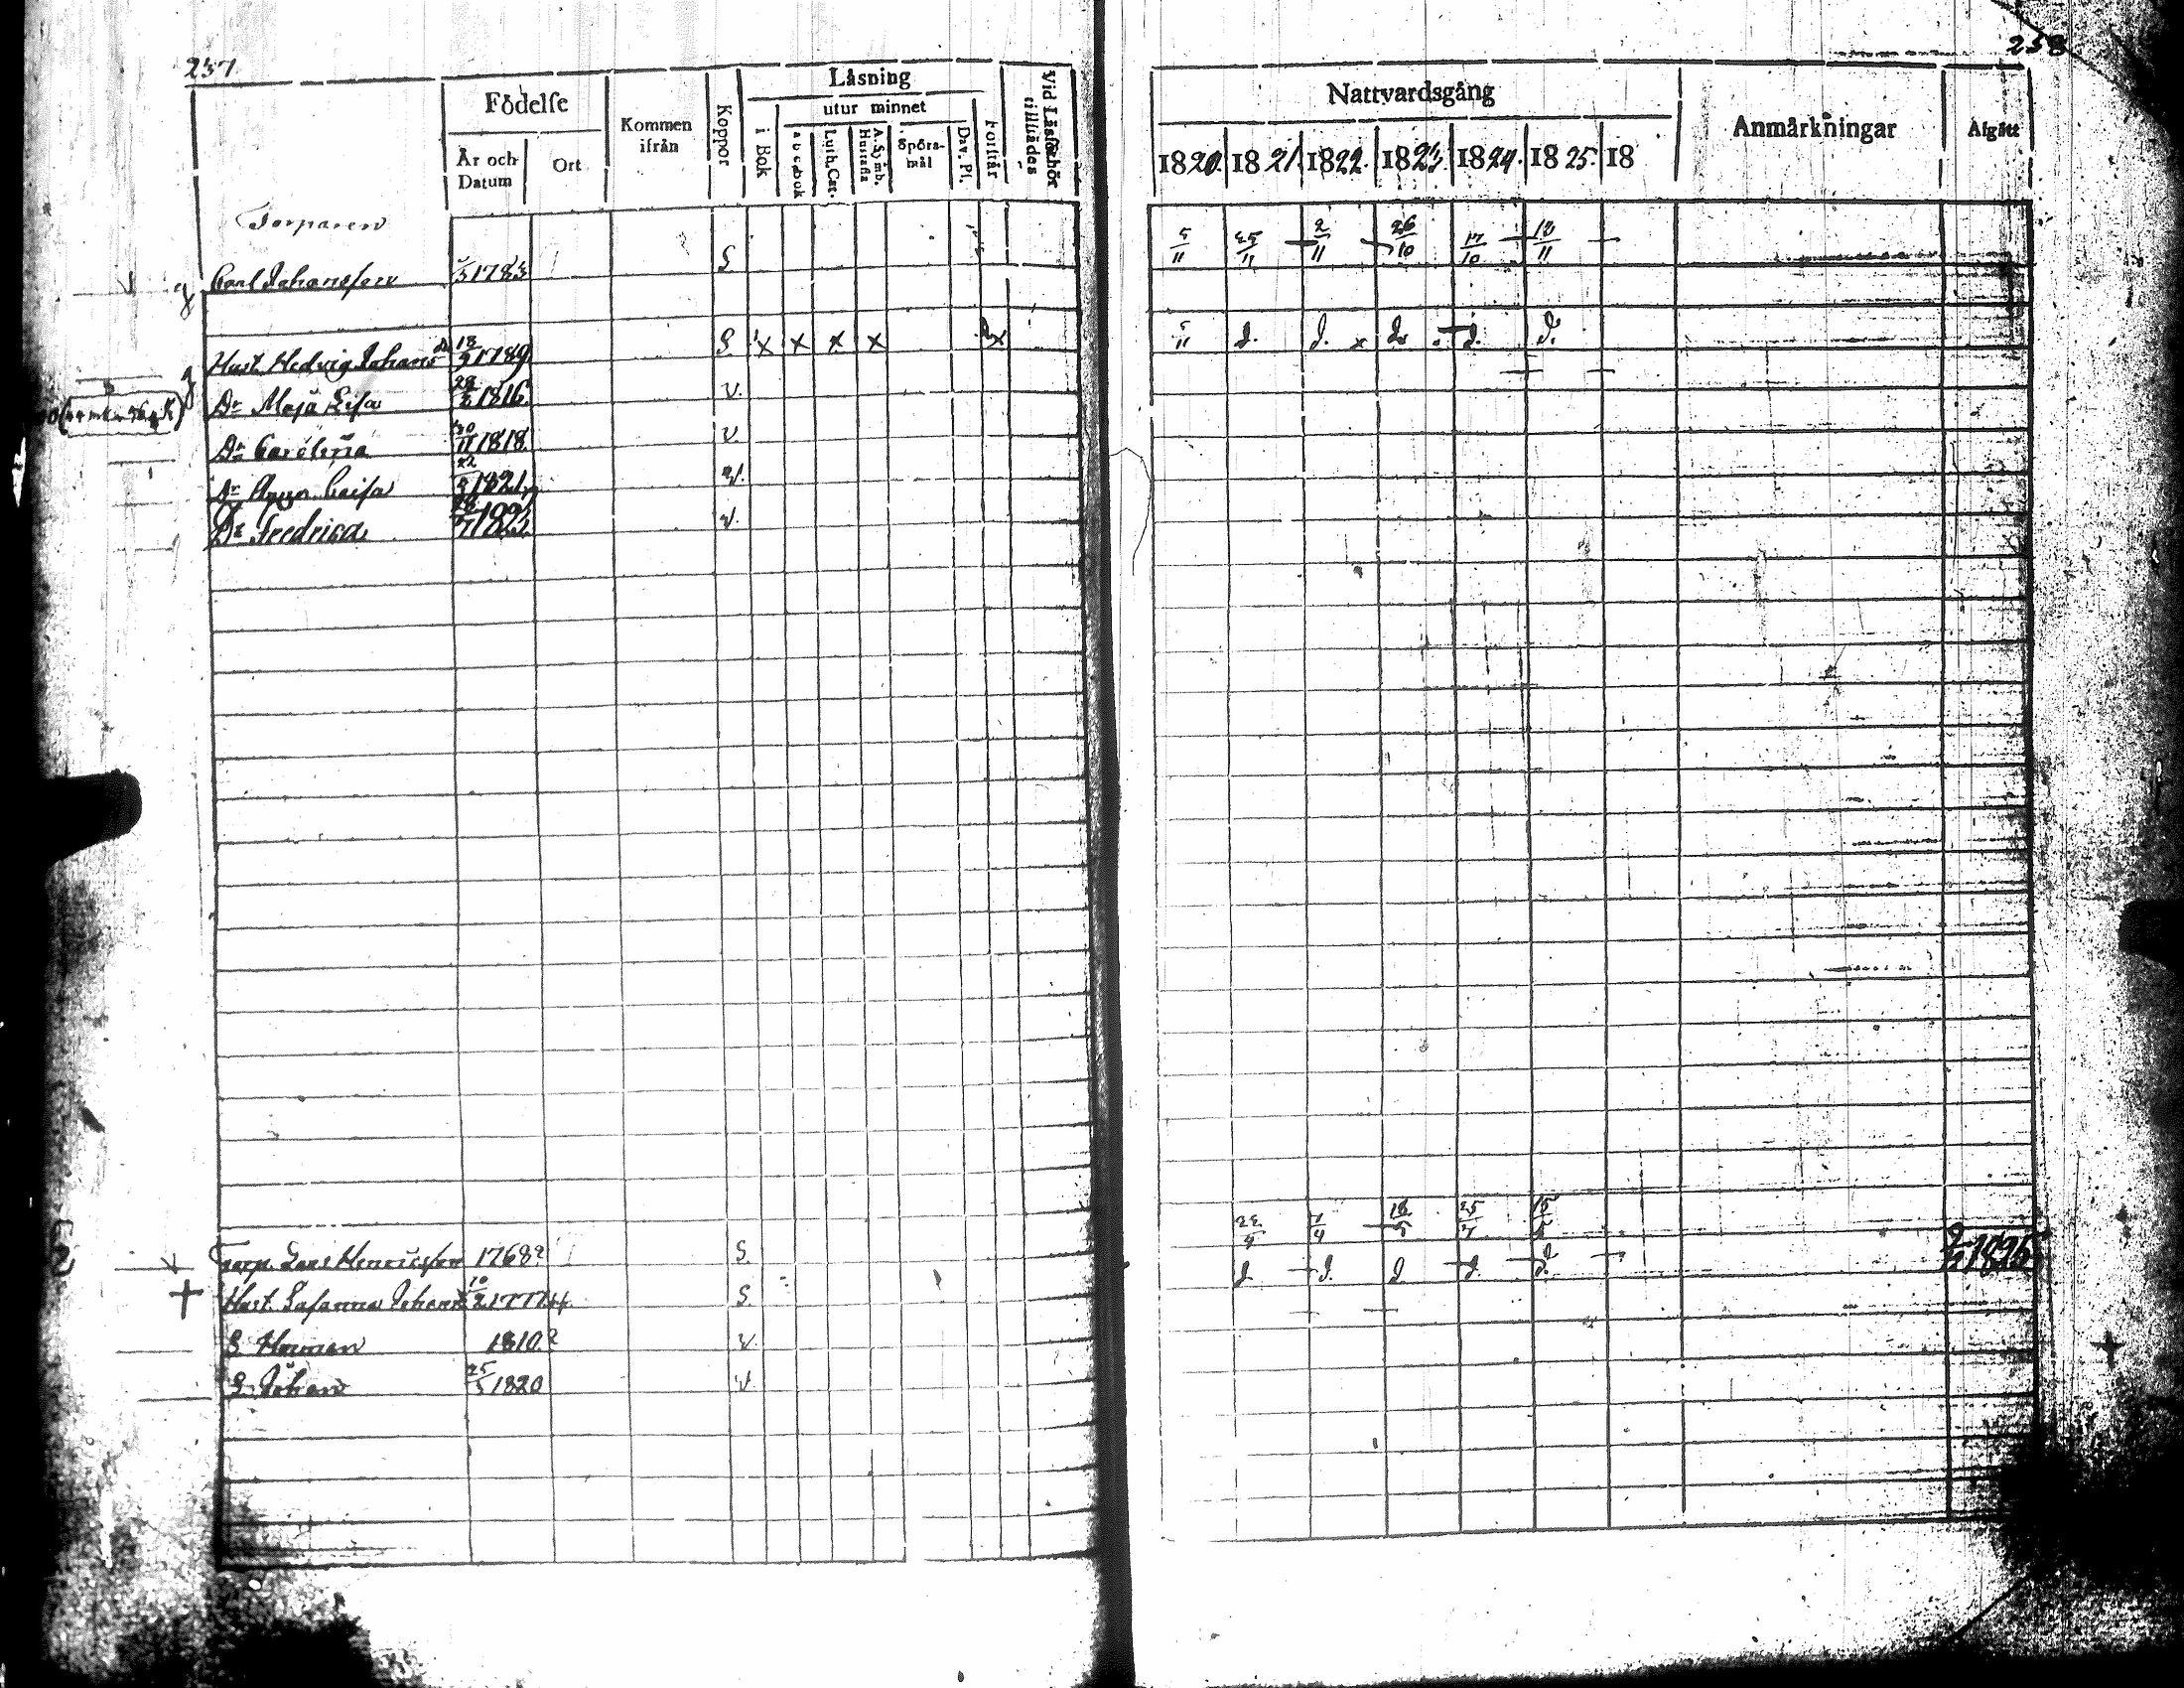 257
Födelse
År och Datum
Ort
Kommen ifrån
Koppor
Läsning
i Bok
utur minnet
a b c d bok
Luth. Cat.
A. Symb. Hustafla
Spörsmål
Dav. Ps.
Förstår
Vid Läseförhör tillstädes
Torparen
Carl Johansson 1783 S
Hust. Hedvig Johans d. 13/3 1789 S x x x x x
Dr Maja Lisa 28/3 1816 v.
Dr Carolina 30/11 1818 v
Dr Anna Caisa 22/3 1821 v.
Dr Fredrica v.
Torp. Lars Henricsson 1768? S
Hust. Susanna Johans 10/2 1774 S
S Herman 1810? v
S Johan 25/5 1820 v
258
Nattvardsgång
Anmärkningar
Afgått
1820. 1821. 1822. 1823. 1824. 1825. 18
5/11 25/11 2/11 26/10 17/10 12/11
5/11 d. d. d. d. d.
22/4 7/4 18/5 25/7 15/5
d d. d d. d.
1825